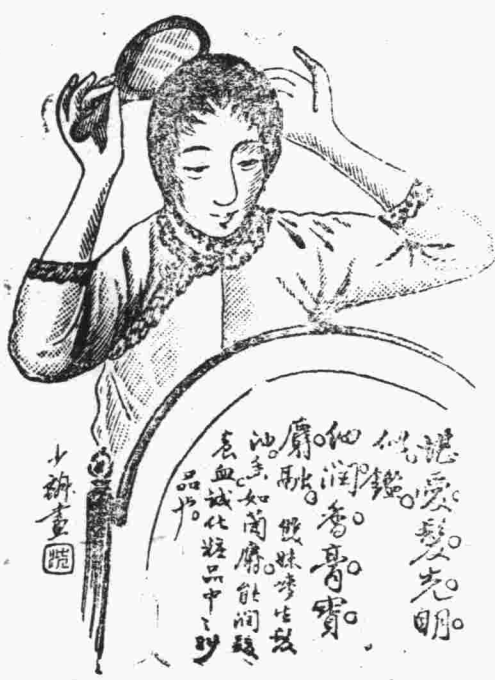 堪愛髮光明
似鑑。
細潤香膏寶
麝融。雙妹嘜生髮
油。香如蘭麝。能潤髮
養血誠化粧品中之妙
品也。
少畫